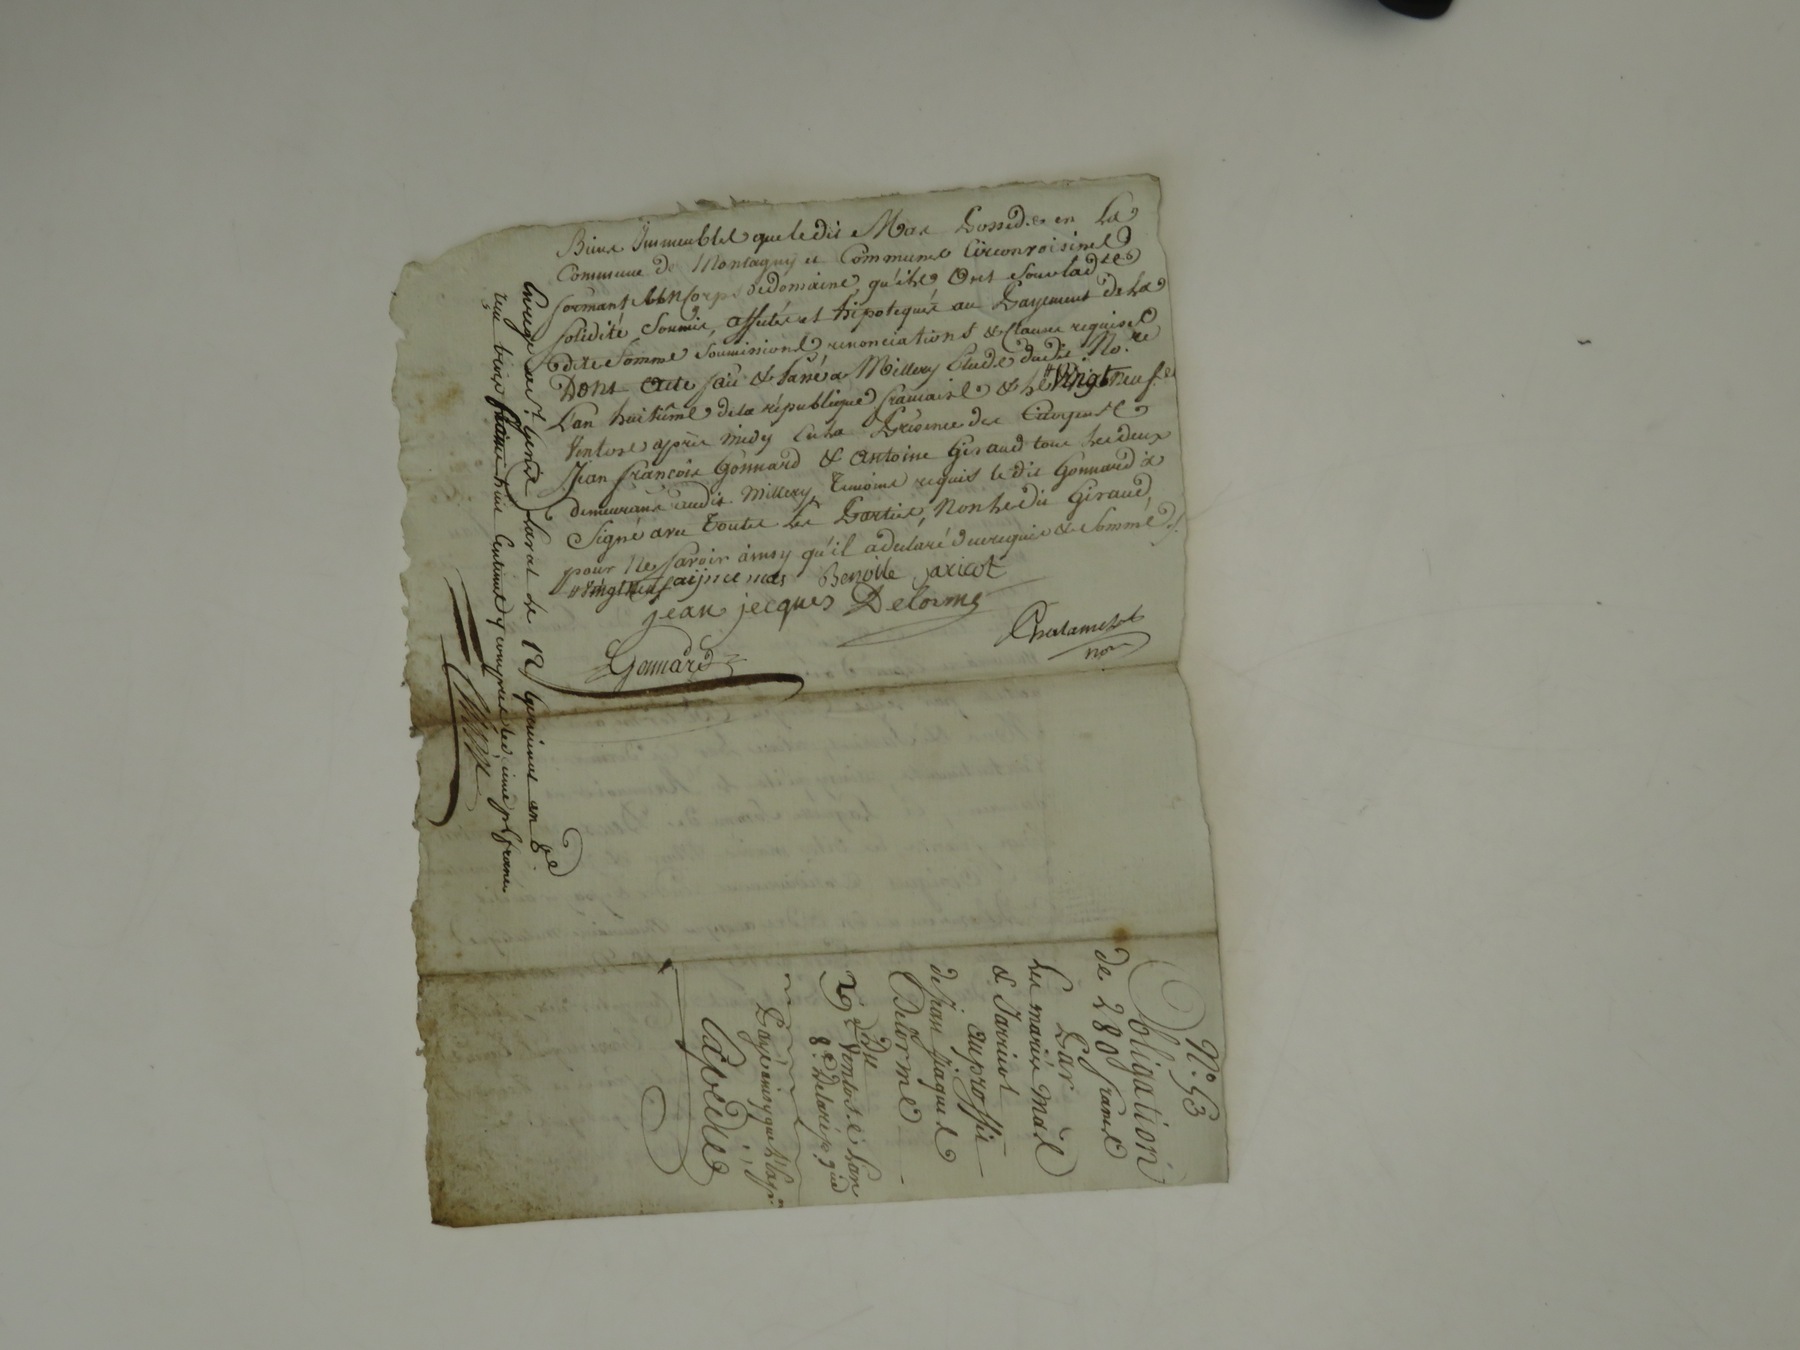 Biens Immeubles que le dit Mas Possede en La
Commune de Montagny et Communes Circonvoisines
formant un Corps de domaine, qu'ils Ont sous la dte
solidité, soumis, affectés et hipotequés au Payement de La
dite somme soumissions renonciations & clauses requises
Dont acte fait & Passé a Millery Etude dudit No.re
L'an huitième de la république française & le Vingt neuf
Ventose après midy En la Présence des Citoyens
Jean françois Gonnard & Antoine Giraud tous les deux
demeurans audit Millery, Temoins requis le dit Gonnard a
Signé avec Toutes les Parties, Non le dit Giraud,
pour Ne savoir ainsy qu'il a declaré de ce requis & sommé
vingt neuf Benoite Jaricot
jean jecques Delorme
Chalamel
not
Gonnard
Enregé a St Genis Laval le 12 germinal an 8e
reçu trois francs huit Centimes y compris le décime pr franc
N.° 53
Obligation
de 280 francs
Par
Les mariés Mas
& Jarricot
au proffit
de Jean Jaques
Delorme
Du
29 Ventose L'an
8e
Expédiée